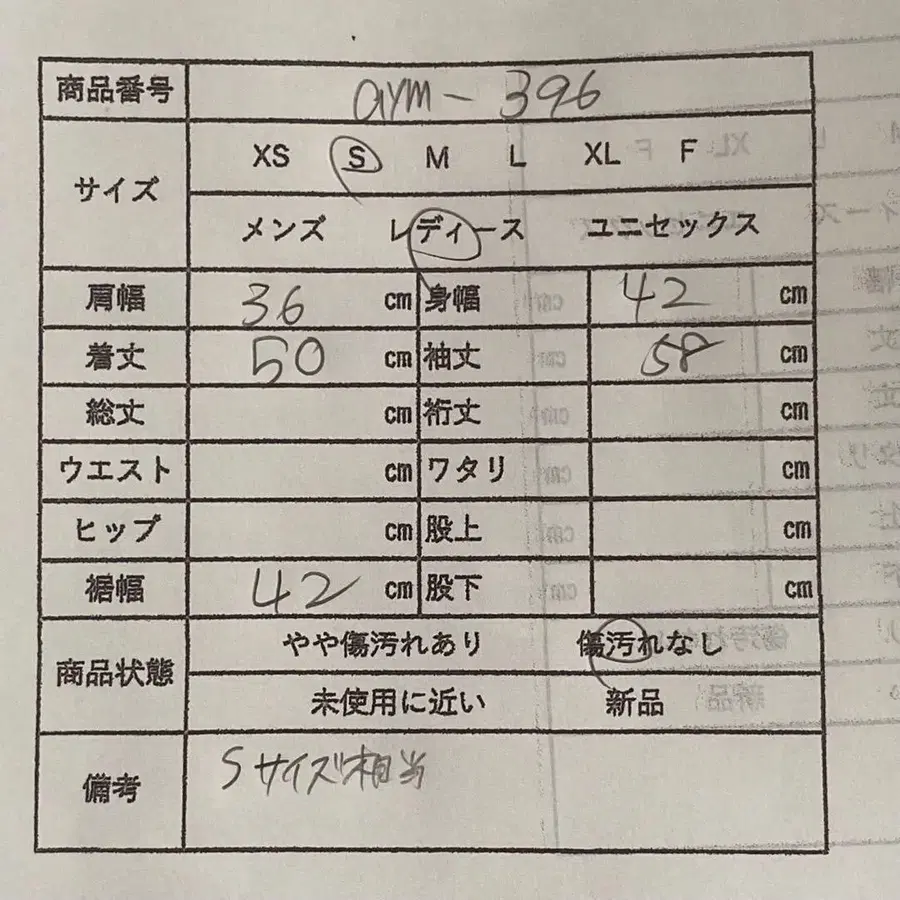 商品番号 aym-396
サイズ XS S M L XL F
メンズ レディース ユニセックス
肩幅 36 cm 身幅 42 cm
着丈 50 cm 袖丈 58 cm
総丈 cm 裄丈 cm
ウエスト cm ワタリ cm
ヒップ cm 股上 cm
裾幅 42 cm 股下 cm
商品状態 やや傷汚れあり 傷汚れなし
未使用に近い 新品
備考 Sサイズ相当